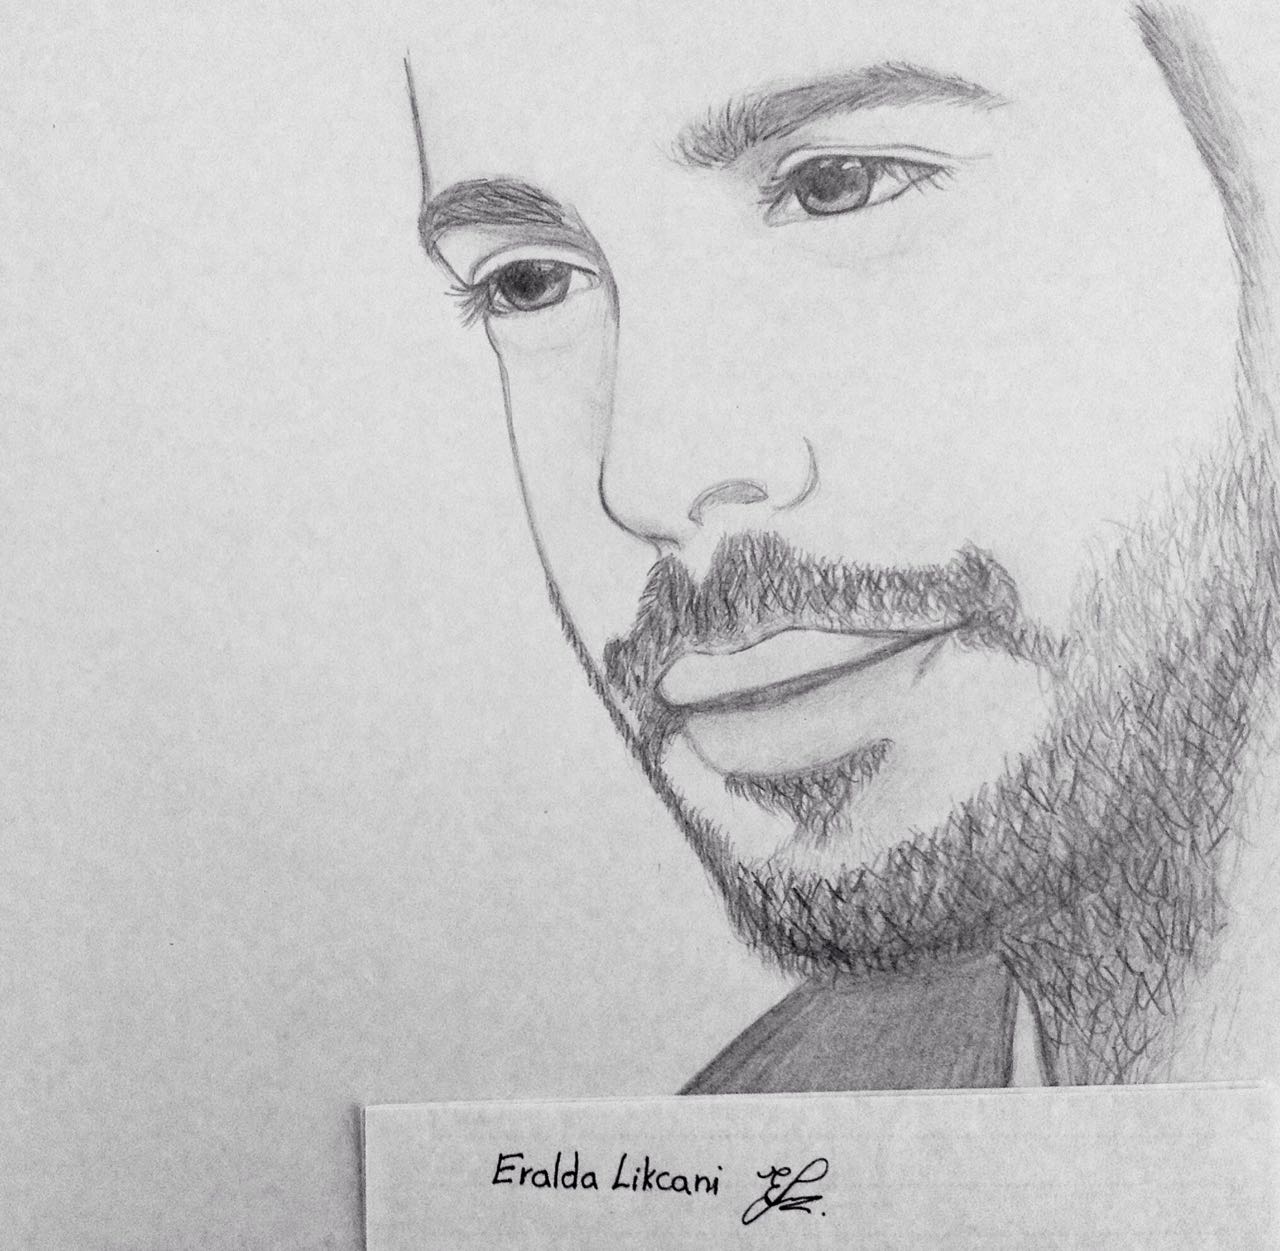 Eralda Likcani